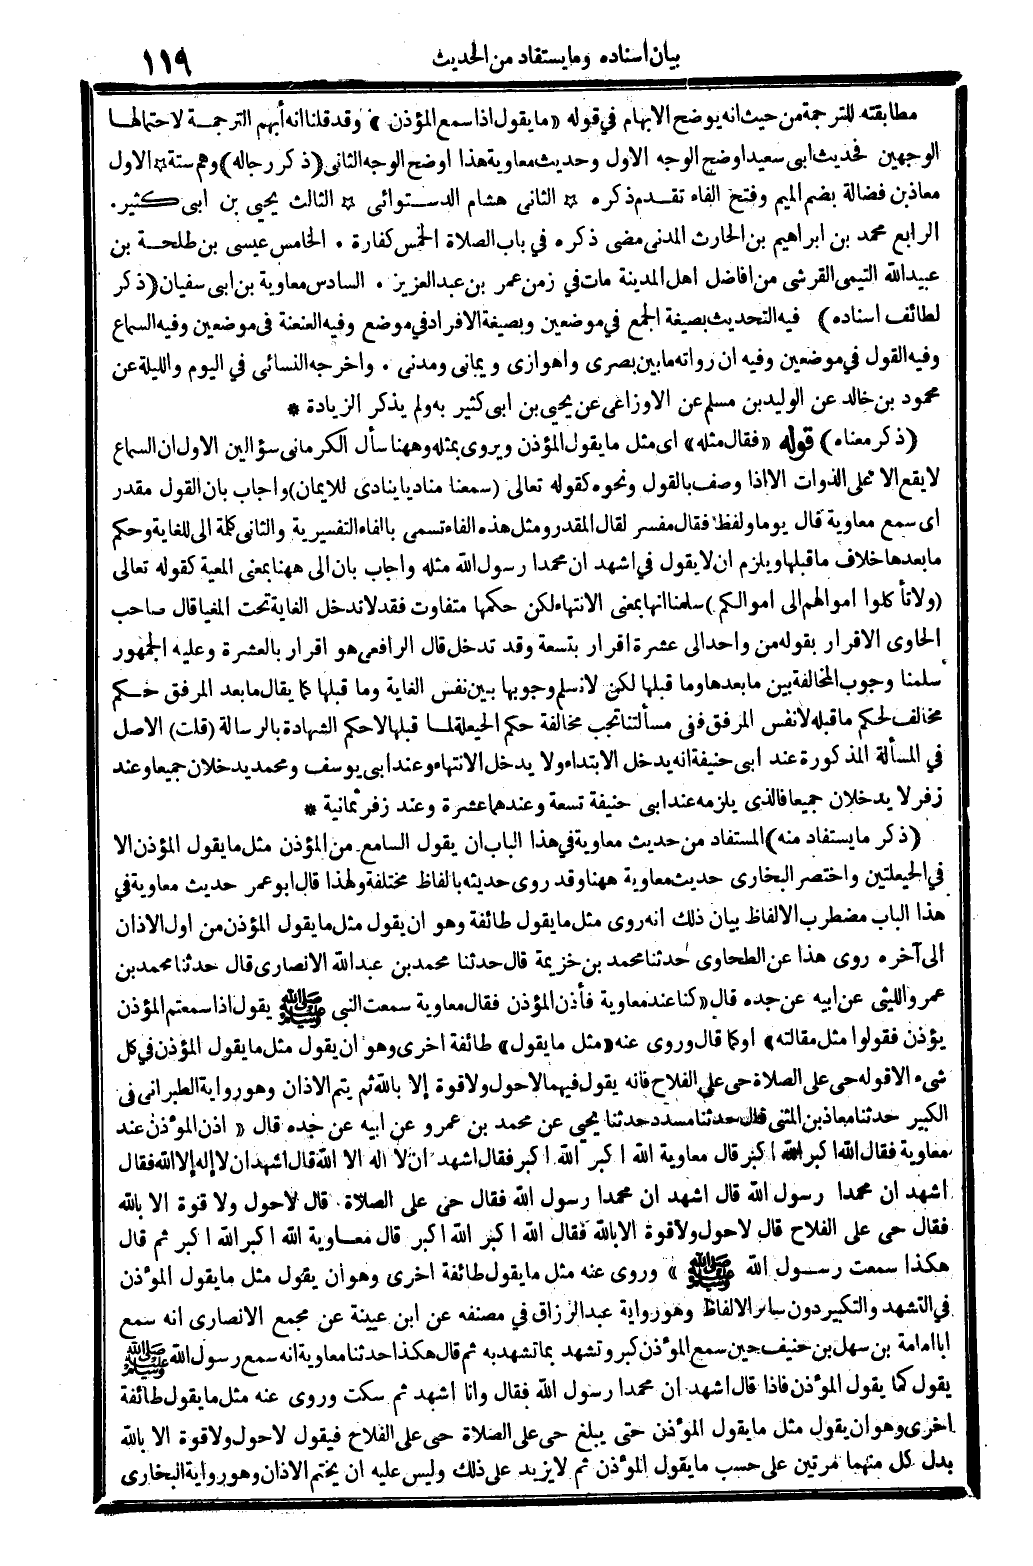 بيان أسناده ومايستفاد من الحديث ١١٩
مطابقته للترجمة من حيث انه يوضح الابهام في قوله «مايقول اذا سمع المؤذن» وقد قلنا انه أبهم الترجمة لاحتمالها
الوجهين فحديث ابى سعيد اوضح الوجه الاول وحديث معاوية هذا اوضح الوجه الثانى (ذكر رجاله) وهم ستة ☆ الاول
معاذ بن فضالة بضم الميم وفتح الفاء تقدم ذكره ☆ الثانى هشام الدستوائى ☆ الثالث يحيى بن ابى كثير .
الرابع محمد بن ابراهيم بن الحارث المدنى مضى ذكره في باب الصلاة الخمس كفارة . الخامس عيسى بن طلحة بن
عبيد الله التيمى القرشى من افاضل اهل المدينة مات في زمن عمر بن عبد العزيز . السادس معاوية بن ابى سفيان (ذكر
لطائف اسناده) فيه التحديث بصيغة الجمع في موضعين وبصيغة الافراد في موضع وفيه العنعنة فى موضعين وفيه السماع
وفيه القول في موضعين وفيه ان رواته مابين بصرى واهوازى ويمانى ومدنى . واخرجه النسائى في اليوم والليلة عن
محمود بن خالد عن الوليد بن مسلم عن الاوزاعى عن يحيى بن ابى كثير به ولم يذكر الزيادة *
(ذكر معناه) قوله «فقال مثله» اى مثل مايقول المؤذن ويروى بمثله وههنا سأل الكرمانى سؤالين الاول ان السماع
لايقع الا على الذوات الا اذا وصف بالقول ونحوه كقوله تعالى (سمعنا مناديا ينادى للايمان) واجاب بان القول مقدر
اى سمع معاوية قال يوما ولفظ فقال مفسر لقال المقدر ومثل هذه الفاء تسمى بالفاء التفسيرية والثانى كلمة الى للغاية وحكم
مابعدها خلاف ماقبلها ويلزم ان لايقول في اشهد ان محمدا رسول الله مثله واجاب بان الى ههنا بمعنى المعية كقوله تعالى
(ولاتأكلوا اموالهم الى اموالكم) سلمنا انها بمعنى الانتهاء لكن حكمها متفاوت فقد لاتدخل الغاية تحت المغيا قال صاحب
الحاوى الاقرار بقوله من واحد الى عشرة اقرار بتسعة وقد تدخل قال الرافعى هو اقرار بالعشرة وعليه الجمهور
سلمنا وجوب المخالفة بين مابعدها وما قبلها لكن لانسلم وجوبها بين نفس الغاية وما قبلها كما يقال مابعد المرفق حكم
مخالف لحكم ماقبله لانفس المرفق ففى مسألتنا تجب مخالفة حكم الحيعلة لما قبلها لاحكم الشهادة بالرسالة (قلت) الاصل
في المسألة المذكورة عند ابى حنيفة انه يدخل الابتداء ولا يدخل الانتهاء وعند ابى يوسف ومحمد يدخلان جميعا وعند
زفر لا يدخلان جميعا فالذى يلزمه عند ابى حنيفة تسعة وعندهما عشرة وعند زفر ثمانية *
(ذكر مايستفاد منه) المستفاد من حديث معاوية في هذا الباب ان يقول السامع من المؤذن مثل مايقول المؤذن الا
في الحيعلتين واختصر البخارى حديث معاوية ههنا وقد روى حديثه بالفاظ مختلفة ولهذا قال ابو عمر حديث معاوية في
هذا الباب مضطرب الالفاظ بيان ذلك انه روى مثل مايقول طائفة وهو ان يقول مثل مايقول المؤذن من اول الاذان
الى آخره روى هذا عن الطحاوى حدثنا محمد بن خزيمة قال حدثنا محمد بن عبد الله الانصارى قال حدثنا محمد بن
عمرو الليثى عن ابيه عن جده قال «كنا عند معاوية فأذن المؤذن فقال معاوية سمعت النبى ﷺ يقول اذا سمعتم المؤذن
يؤذن فقولوا مثل مقالته» او كما قال وروى عنه «مثل مايقول» طائفة اخرى وهو ان يقول مثل مايقول المؤذن في كل
شىء الا قوله حى على الصلاة حى على الفلاح فانه يقول فيهما لاحول ولاقوة إلا بالله ثم يتم الاذان وهو رواية الطبرانى فى
الكبير حدثنا معاذ بن المثنى قال حدثنا مسدد حدثنا يحيى عن محمد بن عمرو عن ابيه عن جده قال « اذن المؤذن عند
معاوية فقال الله اكبر الله اكبر قال معاوية الله اكبر الله اكبر فقال اشهد ان لا اله الا الله قال اشهد ان لا إله إلا الله فقال
اشهد ان محمدا رسول الله قال اشهد ان محمدا رسول الله فقال حى على الصلاة قال لاحول ولا قوة الا بالله
فقال حى على الفلاح قال لاحول ولاقوة الا بالله فقال الله اكبر الله اكبر قال معاوية الله اكبر الله اكبر ثم قال
هكذا سمعت رسول الله ﷺ » وروى عنه مثل مايقول طائفة اخرى وهو ان يقول مثل مايقول المؤذن
في التشهد والتكبير دون سائر الالفاظ وهو رواية عبد الرزاق في مصنفه عن ابن عيينة عن مجمع الانصارى انه سمع
ابا امامة بن سهل بن حنيف حين سمع المؤذن كبر وتشهد بما تشهد به ثم قال هكذا حدثنا معاوية انه سمع رسول الله ﷺ
يقول كما يقول المؤذن فاذا قال اشهد ان محمدا رسول الله فقال وانا اشهد ثم سكت وروى عنه مثل مايقول طائفة
اخرى وهو ان يقول مثل مايقول المؤذن حتى يبلغ حى على الصلاة حى على الفلاح فيقول لاحول ولاقوة الا بالله
بدل كل منهما مرتين على حسب مايقول المؤذن ثم لايزيد على ذلك وليس عليه ان يختم الاذان وهو رواية البخارى